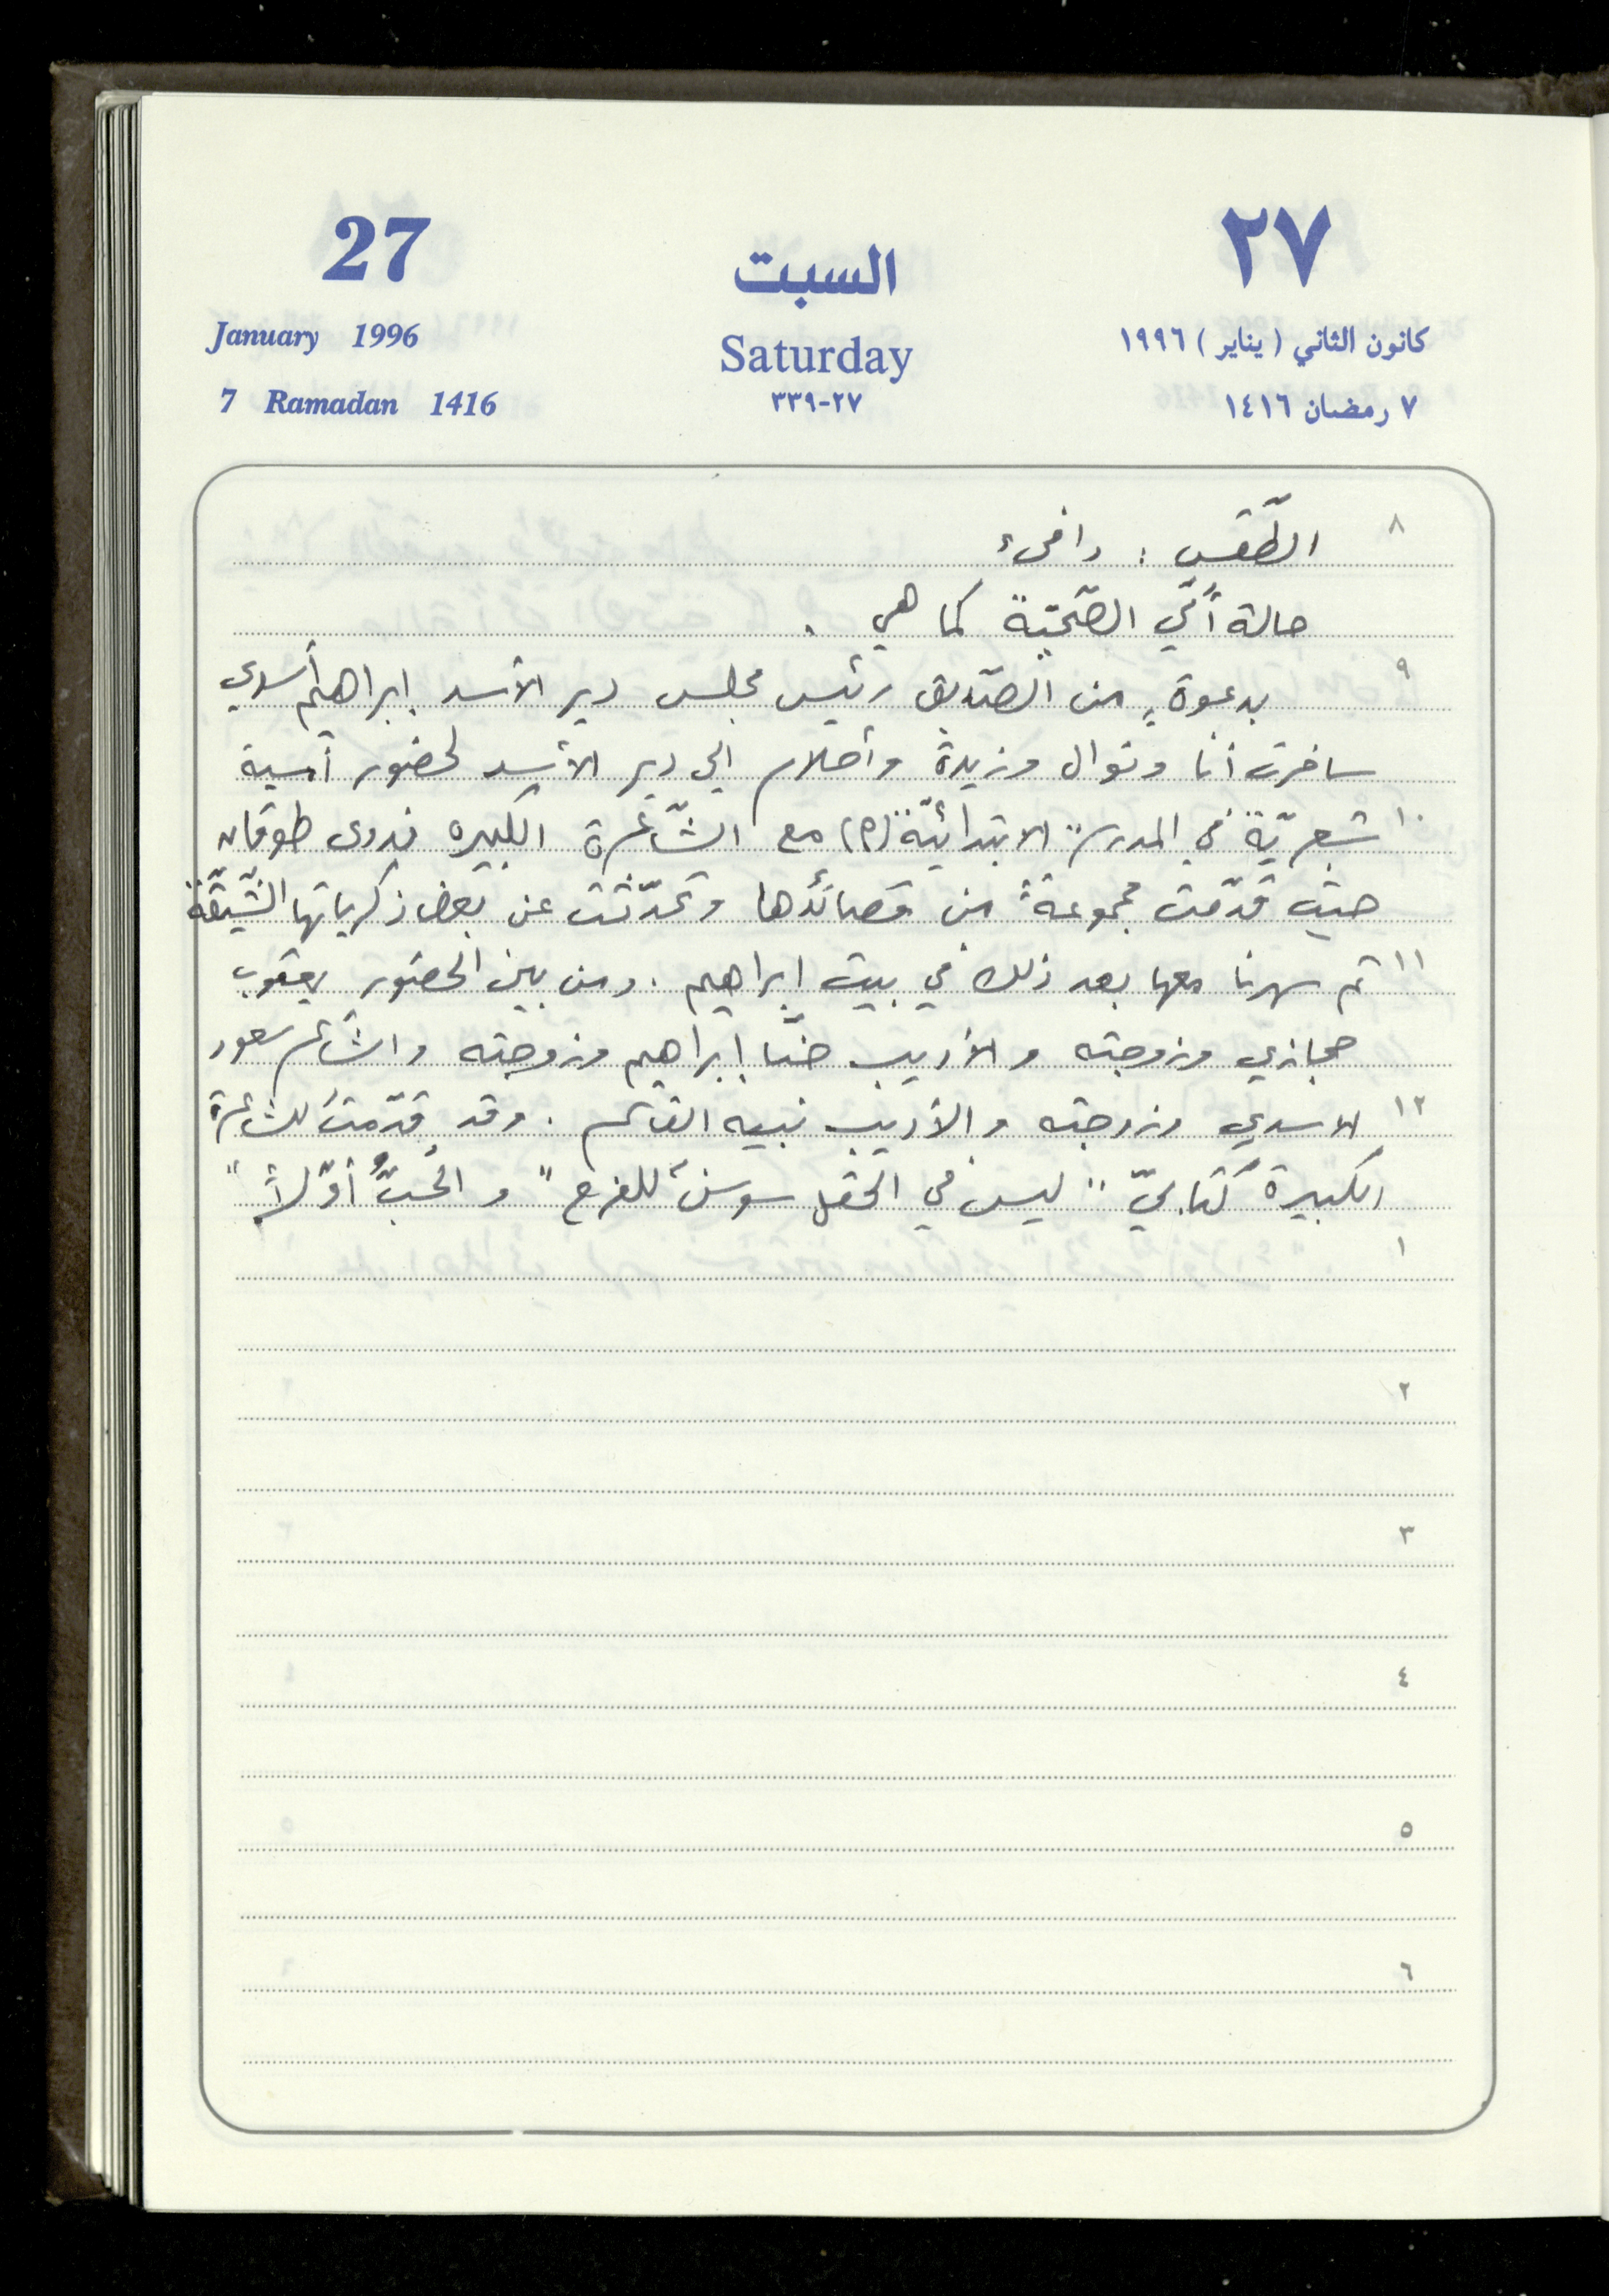 27
السبت
٢٧
January 1996
Saturday
كانون الثاني (يناير) ١٩٩٦
7 Ramadan 1416
٢٧-٣٣٩
٧ رمضان ١٤١٦
٨ الطّقس : دافىء
حالة أمّي الصّحيّة كما هي .
٩ بدعوةٍ من الصّديق رئيس مجلس دير الأسد إبراهيم أسدي
سافرت أنا ونوال وزيدة وأحلام إلى دير الأسد لحضور أمسية
١٠ شعريّة في المدرسة الابتدائيّة (م) مع الشّاعرة الكبيرة فدوى طوقان
حيث قدّمت مجموعةً من قصائدها وتحدّثت عن بعض ذكرياتها الشّيّقة
١١ ثم سهرنا معها بعد ذلك في بيت إبراهيم . ومن بين الحضور يعقوب
حجازي وزوجته والأديب حنّا إبراهيم وزوجته والشاعر سعود
١٢ الاسدي وزوجته والأديب نبيه القاسم . وقد قدّمتُ للشاعرة
الكبيرة كتابيّ "ليس في الحقل سوسنٌ للفرح" و الحُبُّ أوّلاً"
١
٢
٣
٤
٥
٦